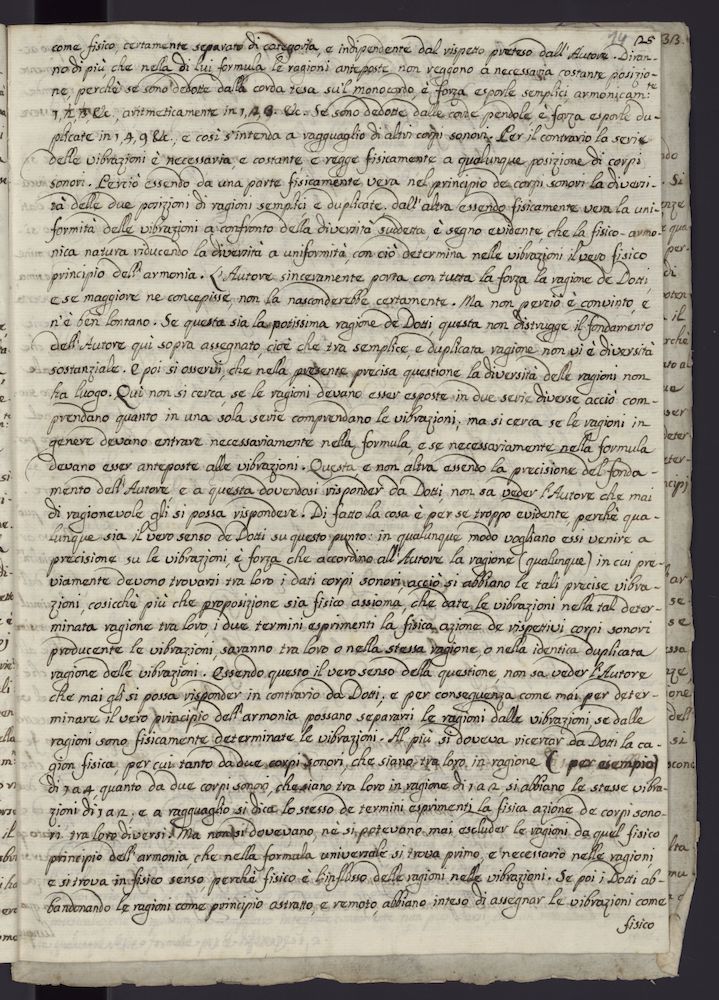 14 125 313.
come fisico, certamente separato di categoria, e indipendente dal rispetto preteso dall'Autore. Diran-
no di più che nella di lui formula le ragioni anteposte non reggono a necessaria costante posizio-
ne, perchè se sono dedotte dalla corda tesa sul monocordo è forza esporle semplici, armonicam:te
1, 1/2, 1/3 &c., aritmeticamente in 1, 2, 3. &c. Se sono dedotte dalle corde pendole è forza esporle du-
plicate in 1, 4, 9 &c., e così s'intenda a ragguaglio di altri corpi sonori. Per il contrario la serie
delle vibrazioni è necessaria, e costante, e regge fisicamente a qualunque posizione di corpi
sonori. Perciò essendo da una parte fisicamente vera nel principio de corpi sonori la diversi-
tà delle due porzioni di ragioni semplici e duplicate. dall'altra essendo fisicamente vera la uni-
formità delle vibrazioni a confronto della diversità suddetta, è segno evidente, che la fisico-armo-
nica natura riducendo la diversità a uniformità, con ciò determina nelle vibrazioni il vero fisico
principio dell'armonia. L'Autore sinceramente porta con tutta la forza la ragione de Dotti,
e se maggiore ne concepisse, non la nasconderebbe certamente. Ma non perciò è convinto, e
n'è ben lontano. Se questa sia la potissima ragione de Dotti, questa non distrugge il fondamento
dell'Autore qui sopra assegnato, cioè che tra semplice e duplicata ragione non vi è diversità
sostanziale. E poi si osservi, che nella presente precisa questione la diversità delle ragioni non
ha luogo. Qui non si cerca se le ragioni devano esser esposte in due serie diverse acciò com-
prendano quanto in una sola serie comprendano le vibrazioni; ma si cerca se le ragioni in
genere devano entrare necessariamente nella formula, e se necessariamente nella formula
devano esser anteposte alle vibrazioni. Questa e non altra essendo la precisione del fonda-
mento dell'Autore, e a questa dovendosi risponder da Dotti, non sa veder l'Autore che mai
di ragionevole gli si possa rispondere. Di fatto la cosa è per se troppo evidente, perchè qua-
lunque sia il vero senso de Dotti su questo punto: in qualunque modo vogliano essi venire a
precisione su le vibrazioni, è forza che accordino all'Autore la ragione (qualunque) in cui pre-
viamente devono trovarsi tra loro i dati corpi sonori, acciò si abbiano le tali precise vibra-
zioni, cosicchè più che proposizione sia fisico assioma, che date le vibrazioni nella tal deter-
minata ragione tra loro, i due termini esprimenti la fisica azione de rispettivi corpi sonori
producente le vibrazioni, saranno tra loro o nella stessa ragione, o nella identica duplicata
ragione delle vibrazioni. Essendo questo il vero senso della questione, non sa veder l'Autore
che mai gli si possa risponder in contrario da Dotti, e per conseguenza come mai per deter-
minare il vero principio dell'armonia possano separarsi le ragioni dalle vibrazioni, se dalle
ragioni sono fisicamente determinate le vibrazioni. Al più si doveva ricercar da Dotti la ca-
gion fisica, per cui tanto da due corpi sonori, che siano tra loro in ragione (per esempio)
di 1 a 4, quanto da due corpi sonori, che siano tra loro in ragione di 1 a 2, si abbiano le stesse vibra-
zioni di 1 a 2, e a ragguaglio si dica lo stesso de termini esprimenti la fisica azione de corpi sono-
ri tra loro diversi. Ma non si dovevano, ne si potevano mai escluder le ragioni da quel fisico
principio dell'armonia, che nella formula universale si trova primo, e necessario nelle ragioni
e si trova in fisico senso perchè fisico è l'influsso delle ragioni nelle vibrazioni. Se poi i Dotti ab-
bandonando le ragioni come principio astratto, e remoto, abbiano inteso di assegnar le vibrazioni come
fisico